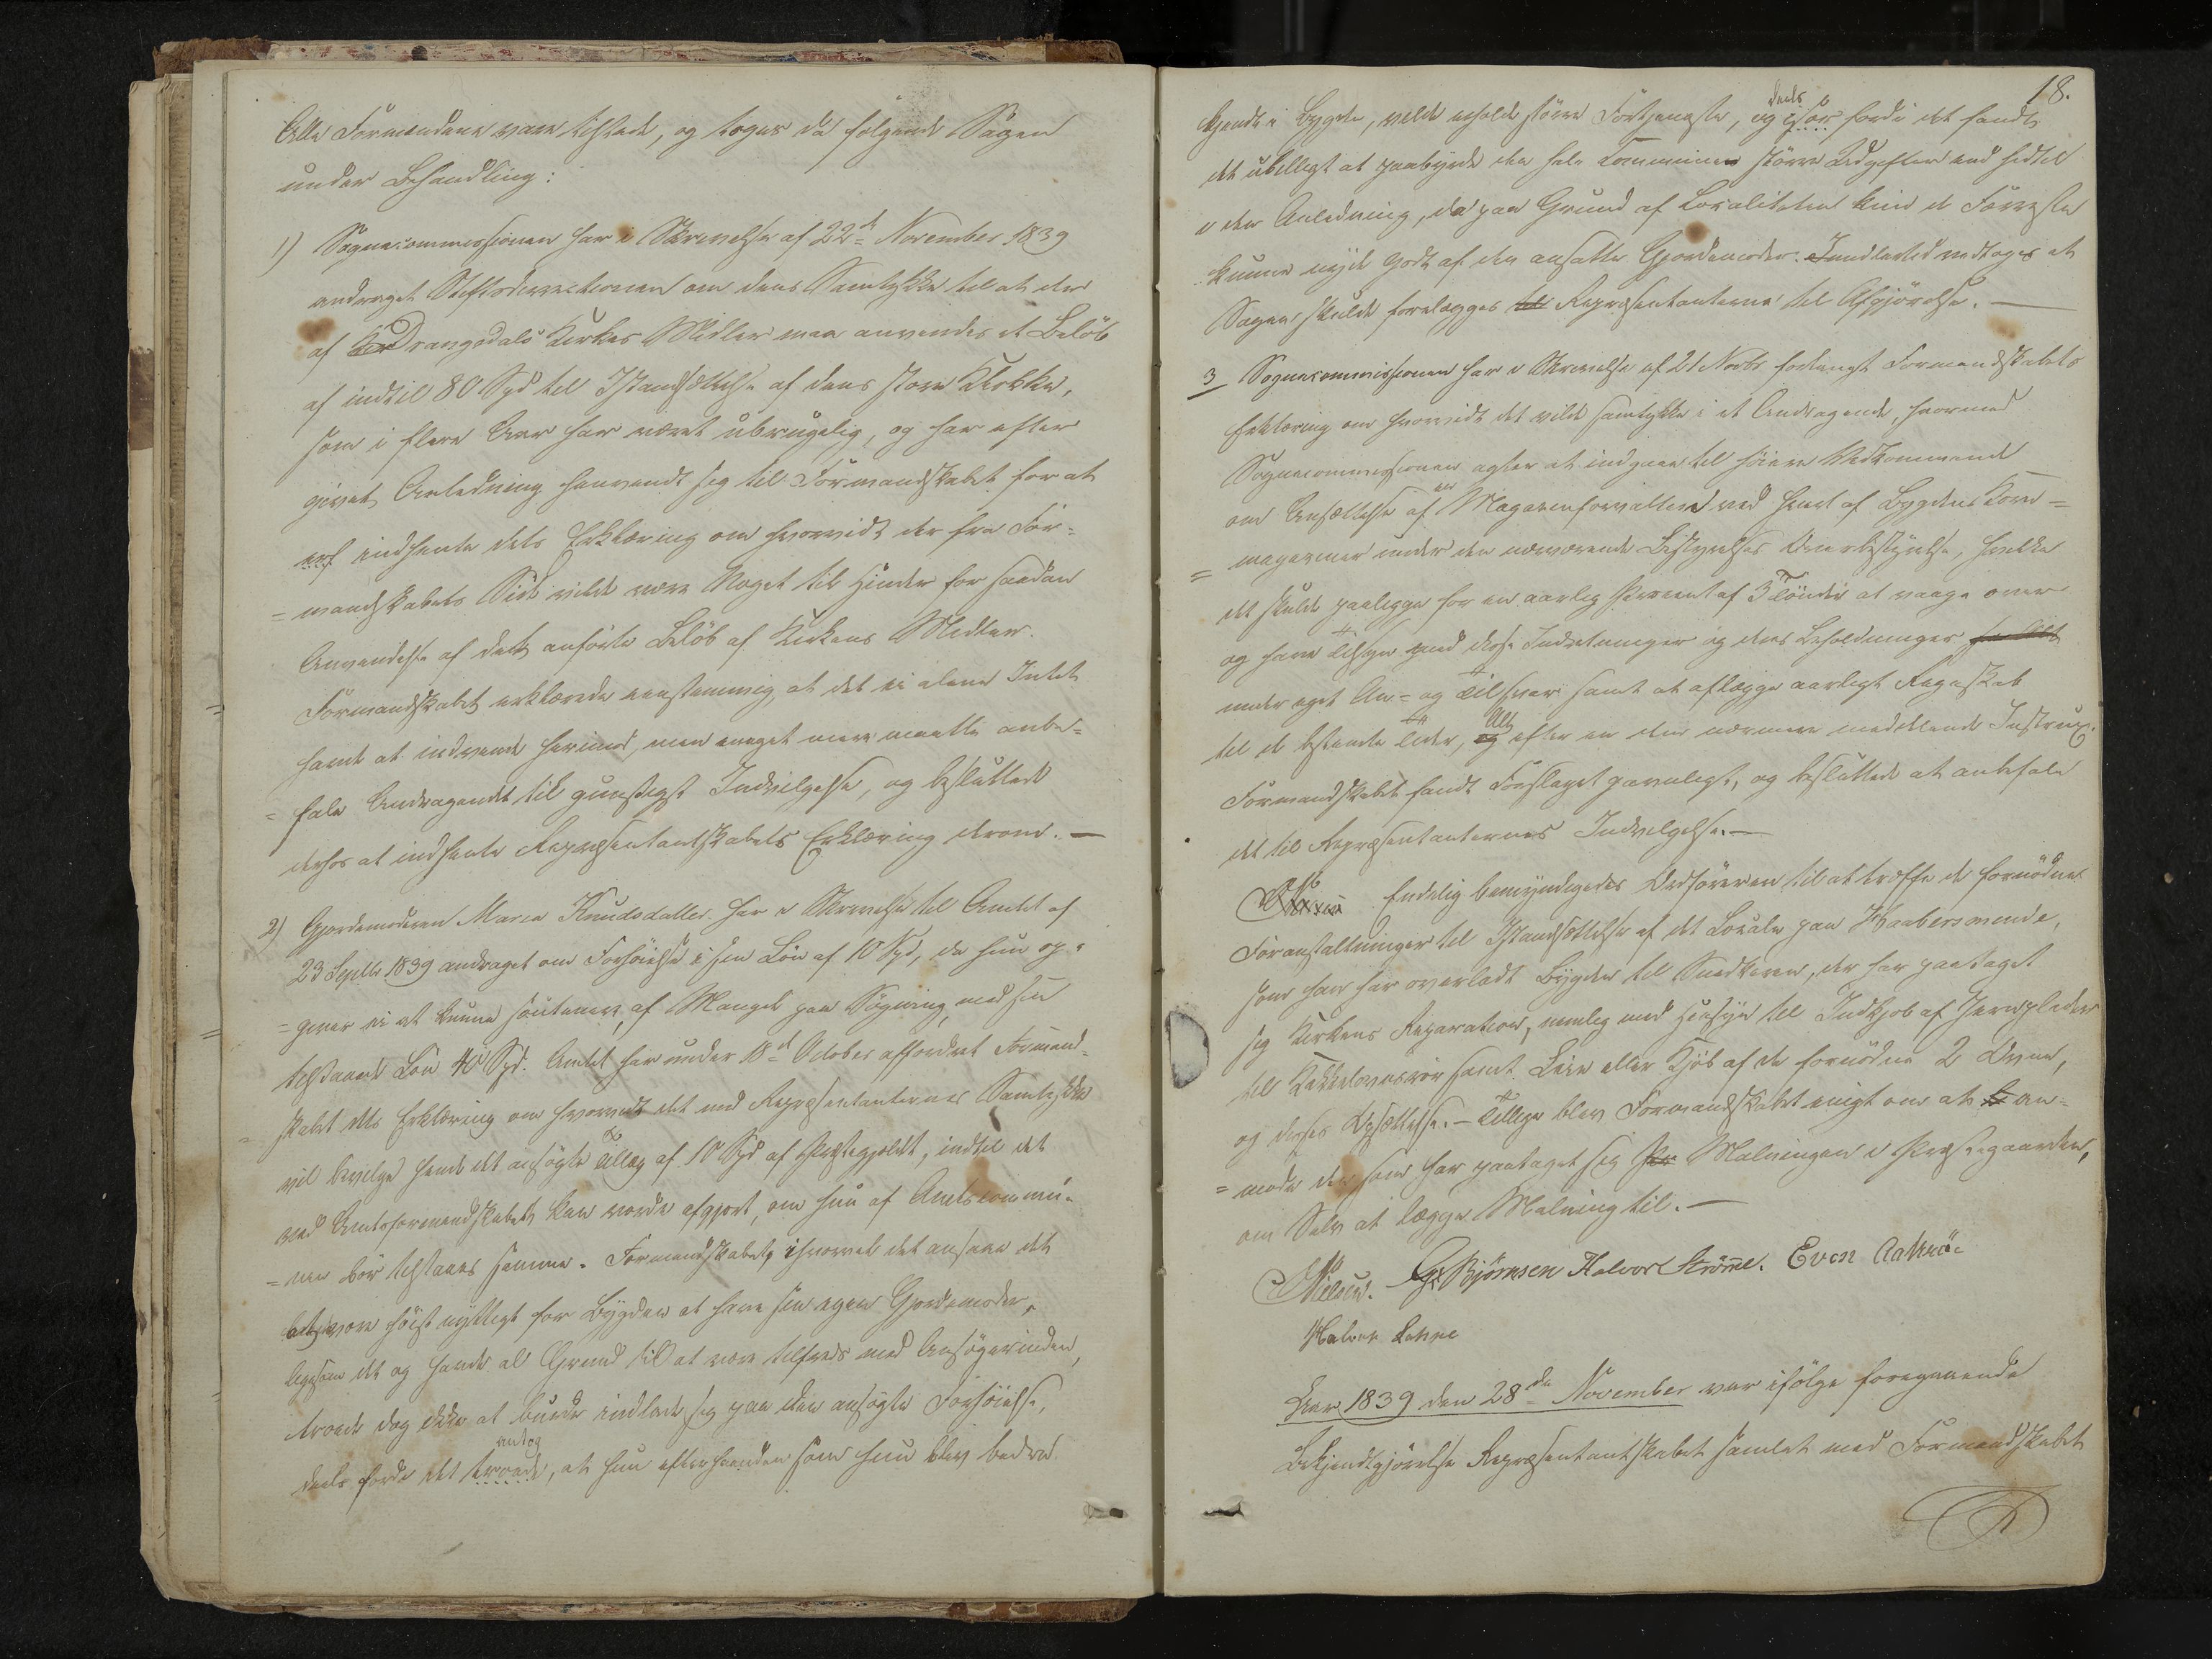 Alle Formændene vare tilstede, og toges da følgende Sager
under Behandling:
1) Sognecommissionen har i Skrivelse af 22de November 1839
andraget Stiftsdirectionen om dens Samtykke til at der
af Drangedals Kirkes Midler maa anvendes et Beløb
af indtil 80 Spd til Istandsættelse af dens store Klokke,
som i flere Aar har været ubrugelig, og har efter
givet Anledning henvendt sig til Formandskabet for at
indhente dets Erklæring om hvorvidt der fra For=
=mandskabets Side vilde være Noget til Hinder for saadan
Anvendelse af det anførte Beløb af Kirkens Midler.
Formandskabet erklærede eenstemmig, at det ei alene Intet
havde at indvende herimod, men meget mere maatte anbe=
=fale Andragendet til gunstigst Indvilgelse, og besluttede
derhos at indhente Repræsentantskabets Erklæring derom. —
2) Gjordemoderen Maren Knudsdatter har i Skrivelse til Amtet af
23 Septbr 1839 andraget om Forhøielse i sin Løn af 10 Spd, da hun op=
=giver ei at kunne soutenere, af Mangel paa Søgning, med sin
tilstaaede Løn 40 Spd. Amtet har under 18de October affordret Formand=
skabet dets Erklæring om hvorvidt det med Repræsentanternes Samtykke
vil bevilge hende det ansøgte Tillæg af 10 Spd af Præstegjeldet, indtil det
ved Amtsformandskabet kan vorde afgjort, om hun af Amtscommu=
=nen bør tilstaaes samme. Formandskabet, ihvorvel det ansaae det
at være høist nyttigt for Bygden at have sin egen Gjordemoder,
ligesom det og havde al Grund til at være tilfreds med Ansøgerinden,
troede dog ikke at burde indlade sig paa den ansøgte Forhøielse,
antog
deels fordi det troede, at hun efterhaanden som hun blev bedre
18.
deels
kjendt i Bygden, vilde erholde større Fortjeneste, og især fordi det fandt
det ubilligt at paabyrde den hele Commune større Udgifter end hidtil
i den Anledning, da paa Grund af Localiteten kun de Færreste
kunne nyde godt af den ansatte Gjordemoder. Imidlertid vedtoges at
Sagen skulde forelægges til Repræsentanterne til Afgjørelse. —
3 Sognecommissionen har i Skrivelse af 21 Novbr forlangt Formandskabets
Erklæring om hvorvidt det vilde samtykke i et Andragende, hvormed
Sognecommissionen agter at indgaae til høiere Vedkommende
om Ansættelse af en Magasinforvalter ved hvert af Bygdens Korn=
=magasiner under den nærværende Bestyrelses Overbestyrelse, hvilke
det skulde paaligge for en aarlig Procent af 3 Tønder at vaage over
og have Tilsyn med disse Indretninger og dens Beholdninger
under eget An= og Tilsvar samt at aflægge aarligt Regnskab
Alt
til de bestemte Tider, og efter en dem nærmere meddelende Instrux.
Formandskabet fandt Forslaget gavnligt, og besluttede at anbefale
det til Repræsentanternes Indvilgelse. —
Endelig bemyndigedes Ordføreren til at træffe de fornødne
Foranstaltninger til Istandsættelse af det Locale paa Haabersmende,
som han har overladt Bygden til Snedkeren, der har paataget
sig Kirkens Reparation, nemlig med Hensyn til Indkjøb af Jernplader
til Kakkelovnsrør samt Leie eller Kjøb af de fornødne 2 Ovne,
og disses Opsættelse. — Tillige blev Formandskabet enigt om at an=
=mode den som har paataget sig Malningen i Præstegaarden,
om Selv at lægge Malning til. —
Nielsen. Bjørnsen Halvor Strømme. Even Aakrø:
Halvor Lohne
Aar 1839 den 28de November var ifølge foregaaende
Bekjendtgjørelse Repræsentantskabet samlet med Formandskabet